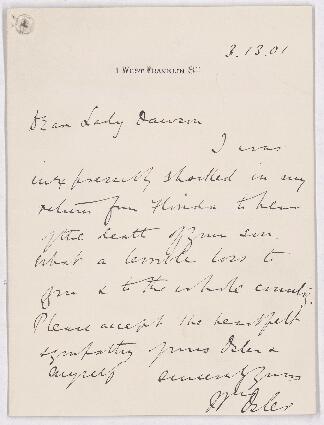 3.13.01
1 WEST FRANKLIN ST.
Dear Lady Dawson
I was
inexpressibly shocked in my
return from Florida to hear
of the death of your son.
What a terrible loss to
you & to the whole country.
Please accept the heartfelt
sympathy of Mrs Osler &
myself sincerely yours
Wm Osler